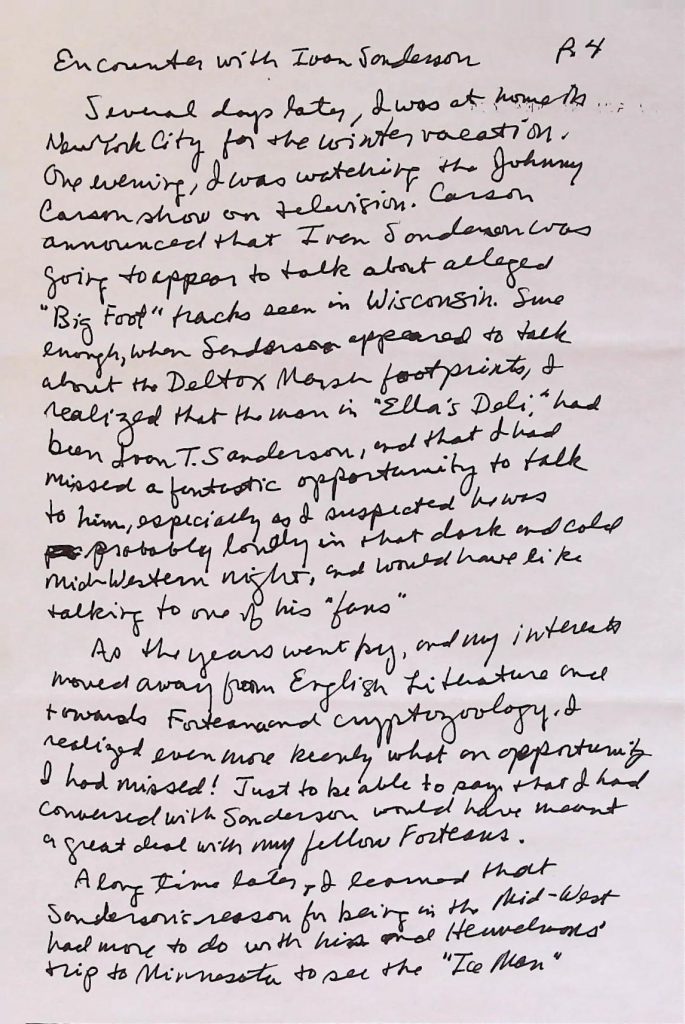 Encounter with Ivan Sanderson P. 4
Several days later, I was at home in
New York City for the winter vacation.
One evening, I was watching the Johnny
Carson show on television. Carson
announced that Ivan Sanderson was
going to appear to talk about alleged
"Big Foot" tracks seen in Wisconsin. Sure
enough, when Sanderson appeared to talk
about the Deltox Marsh footprints, I
realized that the man in "Ella's Deli," had
been Ivan T. Sanderson, and that I had
missed a fantastic opportunity to talk
to him, especially as I suspected he was
probably lonely in that dark and cold
Mid-Western night, and would have like
talking to one of his "fans"
As the years went by, and my interests
moved away from English Literature and
towards Forteana and cryptozoology, I
realized even more keenly what an opportunity
I had missed! Just to be able to say that I had
conversed with Sanderson would have meant
a great deal with my fellow Forteans.
A long time later, I learned that
Sanderson's reason for being in the Mid-West
had more to do with his and Heuvelmans'
trip to Minnesota to see the "Ice Man"